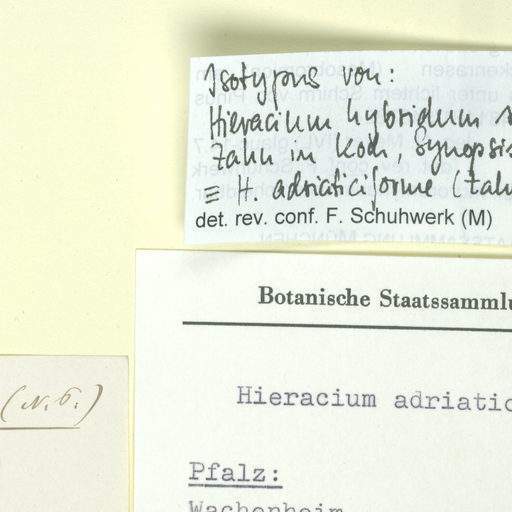 Isotypus von:
Hieracium hybridum
Zahn in Koch, Synopsis
≡ H. adriaticiforme (Zahn
det. rev. conf. F. Schuhwerk (M)
Botanische Staatssammlu
Hieracium adriatic
(N. 6.)
Pfalz:
Wachenheim